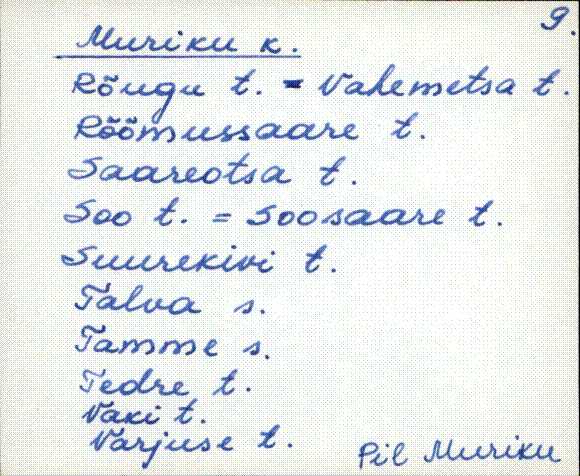 9.
Muriku k.
Rõugu t. = Vahemetsa t.
Rõõmussaare t.
Saareotsa t.
Soo t. = Soosaare t.
Suurekivi t.
Talva s.
Tamme s.
Tedre t.
Vaki t.
Varjuse t.
Pil Muriku